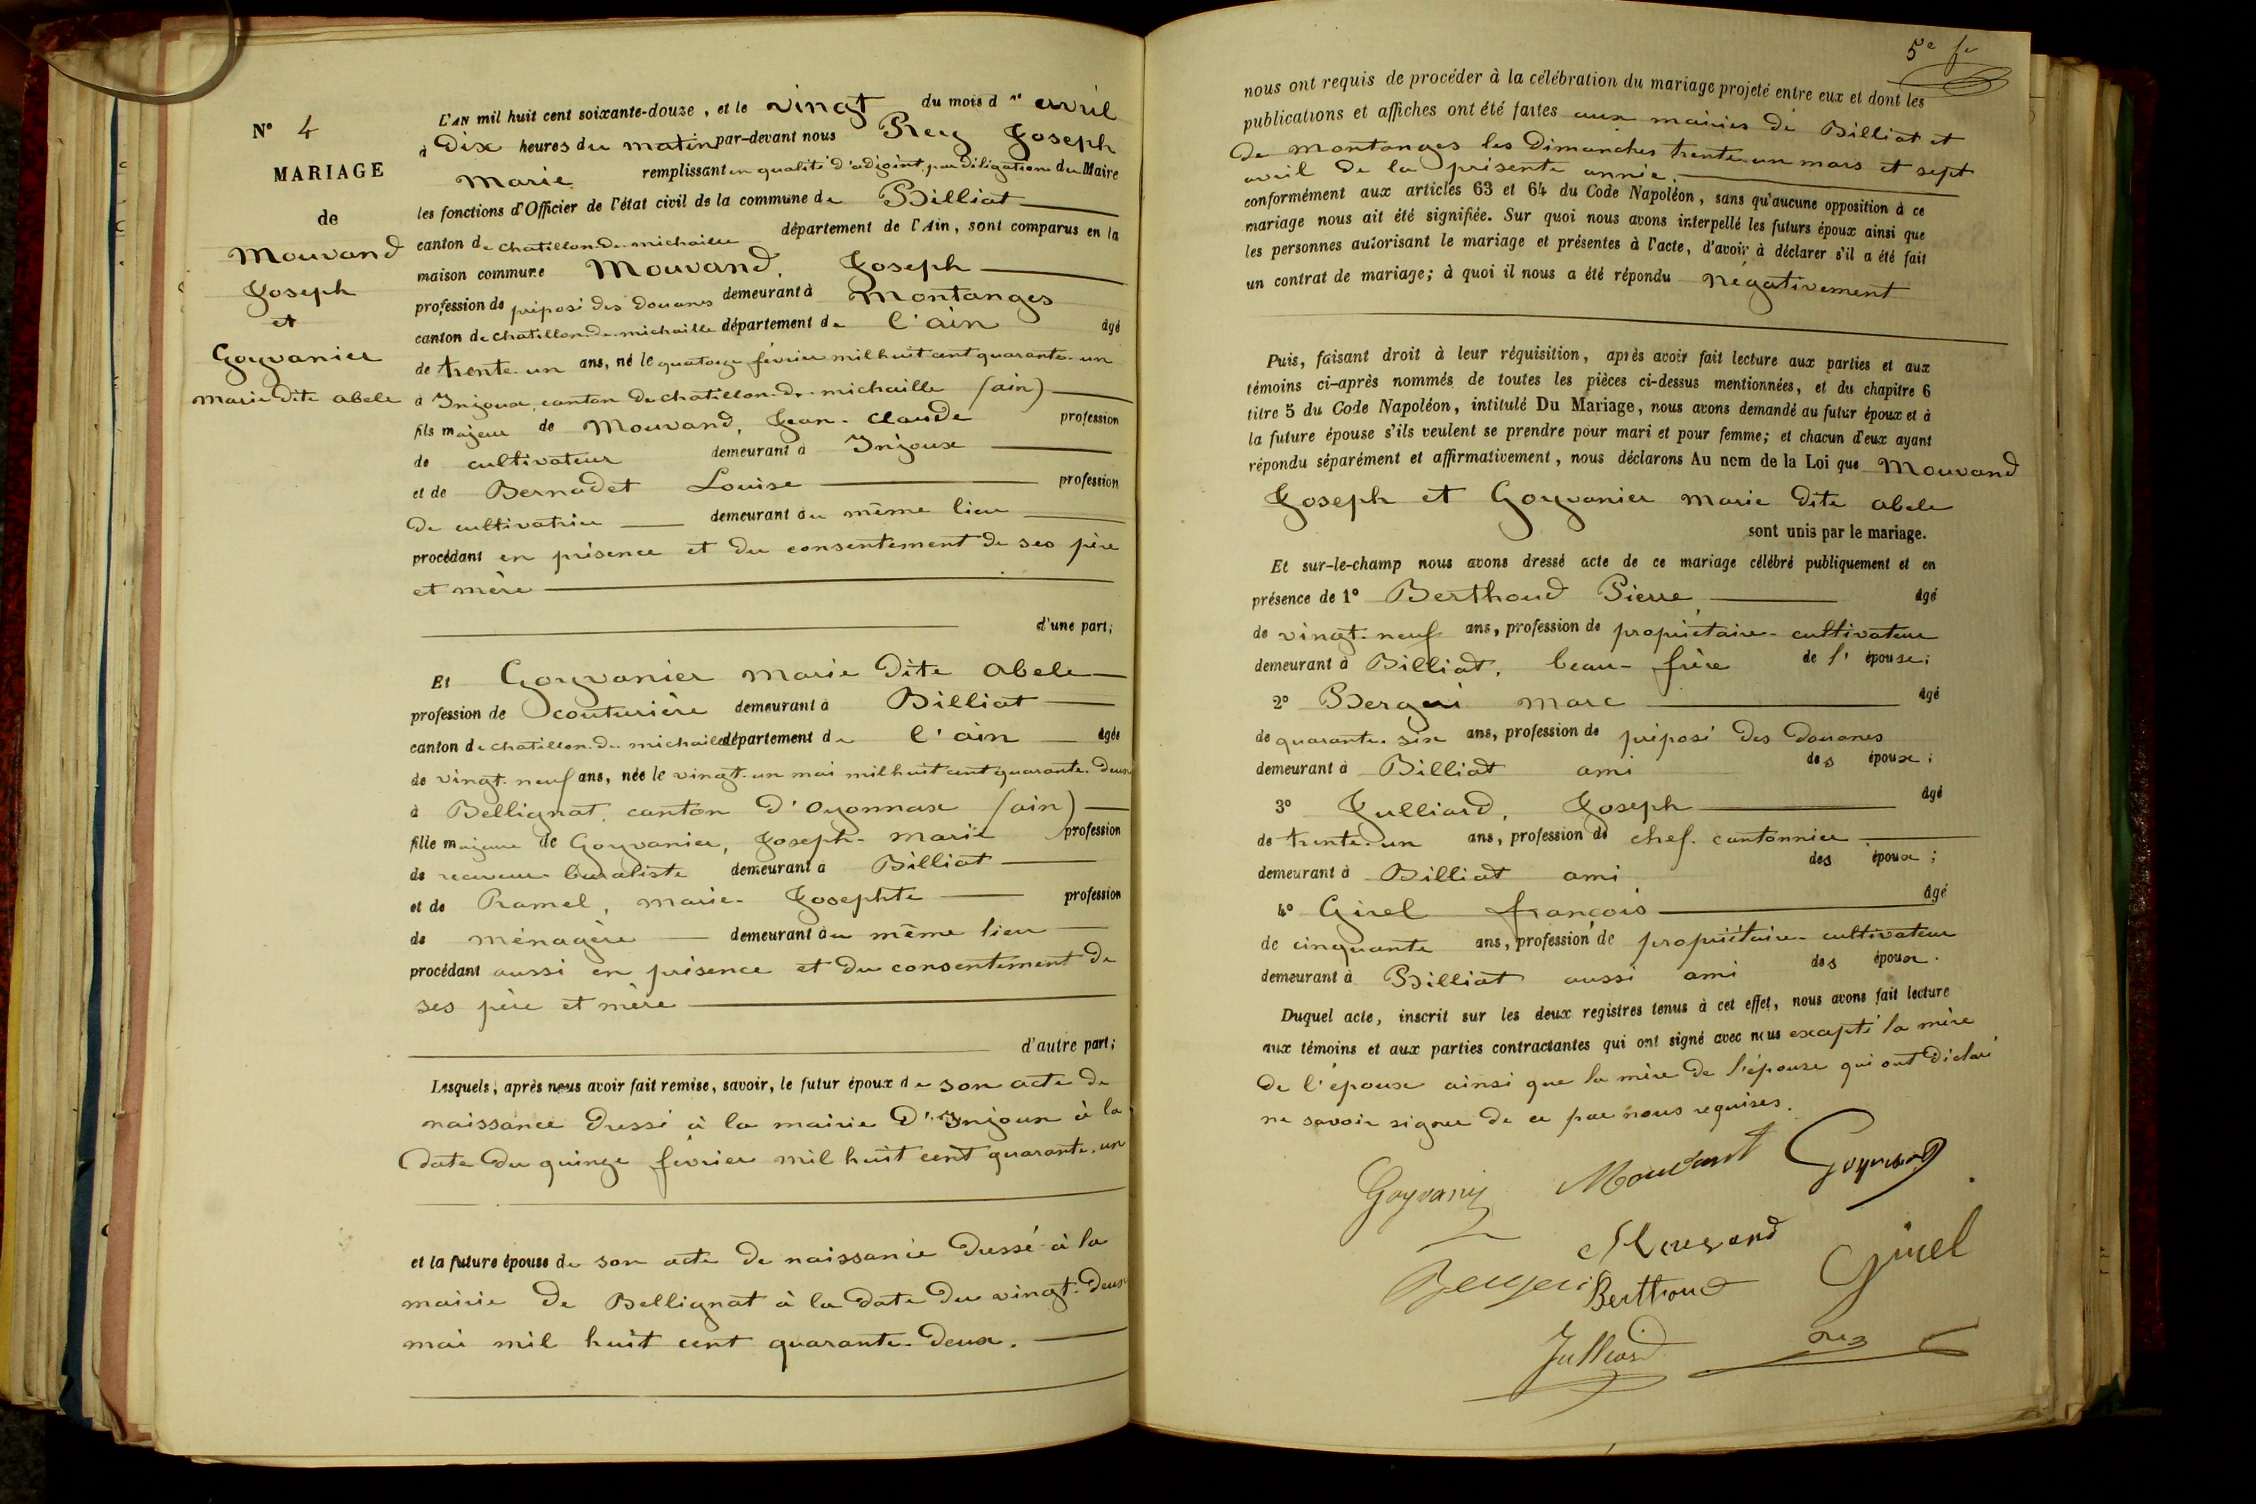 N° 4
MARIAGE
de
Mouvand
Joseph
et
Goyvanier
Marie dite abele
L'AN mil huit cent soixante-douze, et le vingt du mois d'avril
à Dix heures du matin par-devant nous Prey Joseph
Marie remplissant en qualité d'adjoint par délégation du Maire
les fonctions d'Officier de l'état civil de la commune de Billiat
canton de chatillon-de-michaille département de l'Ain, sont comparus en la
maison commune Mouvand, Joseph
profession de préposé des Douanes demeurant à Montanges
canton de chatillon-de-michaille département de l'ain âgé
de trente-un ans, né le quatorze février mil huit cent quarante-un
à Injoux, canton de chatillon-de-michaille (ain)
fils majeur de Mouvand, Jean-Claude profession
de cultivateur demeurant à Injoux
et de Bernadet Louise profession
de cultivatrice demeurant au même lieu
procédant en présence et du consentement de ses père
et mère
d'une part;
Et Goyvanier Marie dite Abele
profession de couturière demeurant à Billiat
canton de chatillon-de-michaille département de l'ain âgée
de vingt-neuf ans, née le vingt-un mai mil huit cent quarante-deux
à Bellignat, canton d'oyonnax (ain)
fille majeure de Goyvanier, Joseph-Marie profession
de receveur buraliste demeurant à Billiat
et de Ramel, Marie-Josephte profession
de ménagère demeurant au même lieu
procédant aussi en présence et du consentement de
ses père et mère
d'autre part;
Lesquels, après nous avoir fait remise, savoir, le futur époux de son acte de
naissance dressé à la mairie d'Injoux à la
date du quinze février mil huit cent quarante-un
et la future épouse de son acte de naissance dressé à la
mairie de Bellignat à la date du vingt-deux
mai mil huit cent quarante-deux.
5e fe
nous ont requis de procéder à la célébration du mariage projeté entre eux et dont les
publications et affiches ont été faites aux mairies de Billiat et
de Montanges les Dimanches trente-un mars et sept
avril de la présente année.
conformément aux articles 63 et 64 du Code Napoléon, sans qu'aucune opposition à ce
mariage nous ait été signifiée. Sur quoi nous avons interpellé les futurs époux ainsi que
les personnes autorisant le mariage et présentes à l'acte, d'avoir à déclarer s'il a été fait
un contrat de mariage; à quoi il nous a été répondu négativement
Puis, faisant droit à leur réquisition, après avoir fait lecture aux parties et aux
témoins ci-après nommés de toutes les pièces ci-dessus mentionnées, et du chapitre 6
titre 5 du Code Napoléon, intitulé Du Mariage, nous avons demandé au futur époux et à
la future épouse s'ils veulent se prendre pour mari et pour femme; et chacun d'eux ayant
répondu séparément et affirmativement, nous déclarons Au nom de la Loi que Mouvand
Joseph et Goyvanier Marie dite abele
sont unis par le mariage.
Et sur-le-champ nous avons dressé acte de ce mariage célébré publiquement et en
présence de 1° Berthoud Pierre, âgé
de vingt-neuf ans, profession de propriétaire-cultivateur
demeurant à Billiat, beau-frère de l'épouse;
2° Bergeri Marc âgé
de quarante-six ans, profession de préposé des Douanes
demeurant à Billiat ami des époux;
3° Julliard, Joseph âgé
de trente-un ans, profession de chef-cantonnier
demeurant à Billiat ami des époux;
4° Girel françois âgé
de cinquante ans, profession de propriétaire-cultivateur
demeurant à Billiat aussi ami des époux.
Duquel acte, inscrit sur les deux registres tenus à cet effet, nous avons fait lecture
aux témoins et aux parties contractantes qui ont signé avec nous excepté la mère
de l'époux ainsi que la mère de l'épouse qui ont déclaré
ne savoir signer de ce par nous requises.
Goyvanier Mouvant
Mouvand Girel
Bergeri Berthoud
Julliard